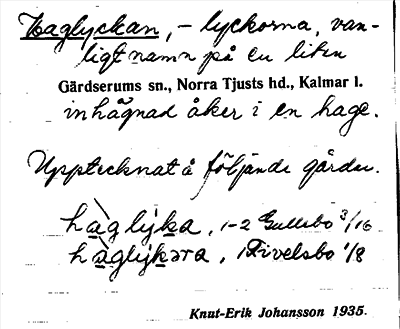 Haglyckan, – lyckorna, van-
ligt namn på en liten
Gärdserums sn., Norra Tjusts hd., Kalmar l.
inhägnad åker i en hage.
Upptecknat å följande gårdar.
haglyka, 1-2 Gullebo 3/16
haglykəra, 1 Fivelsbo 1/8
Knut-Erik Johansson 1935.